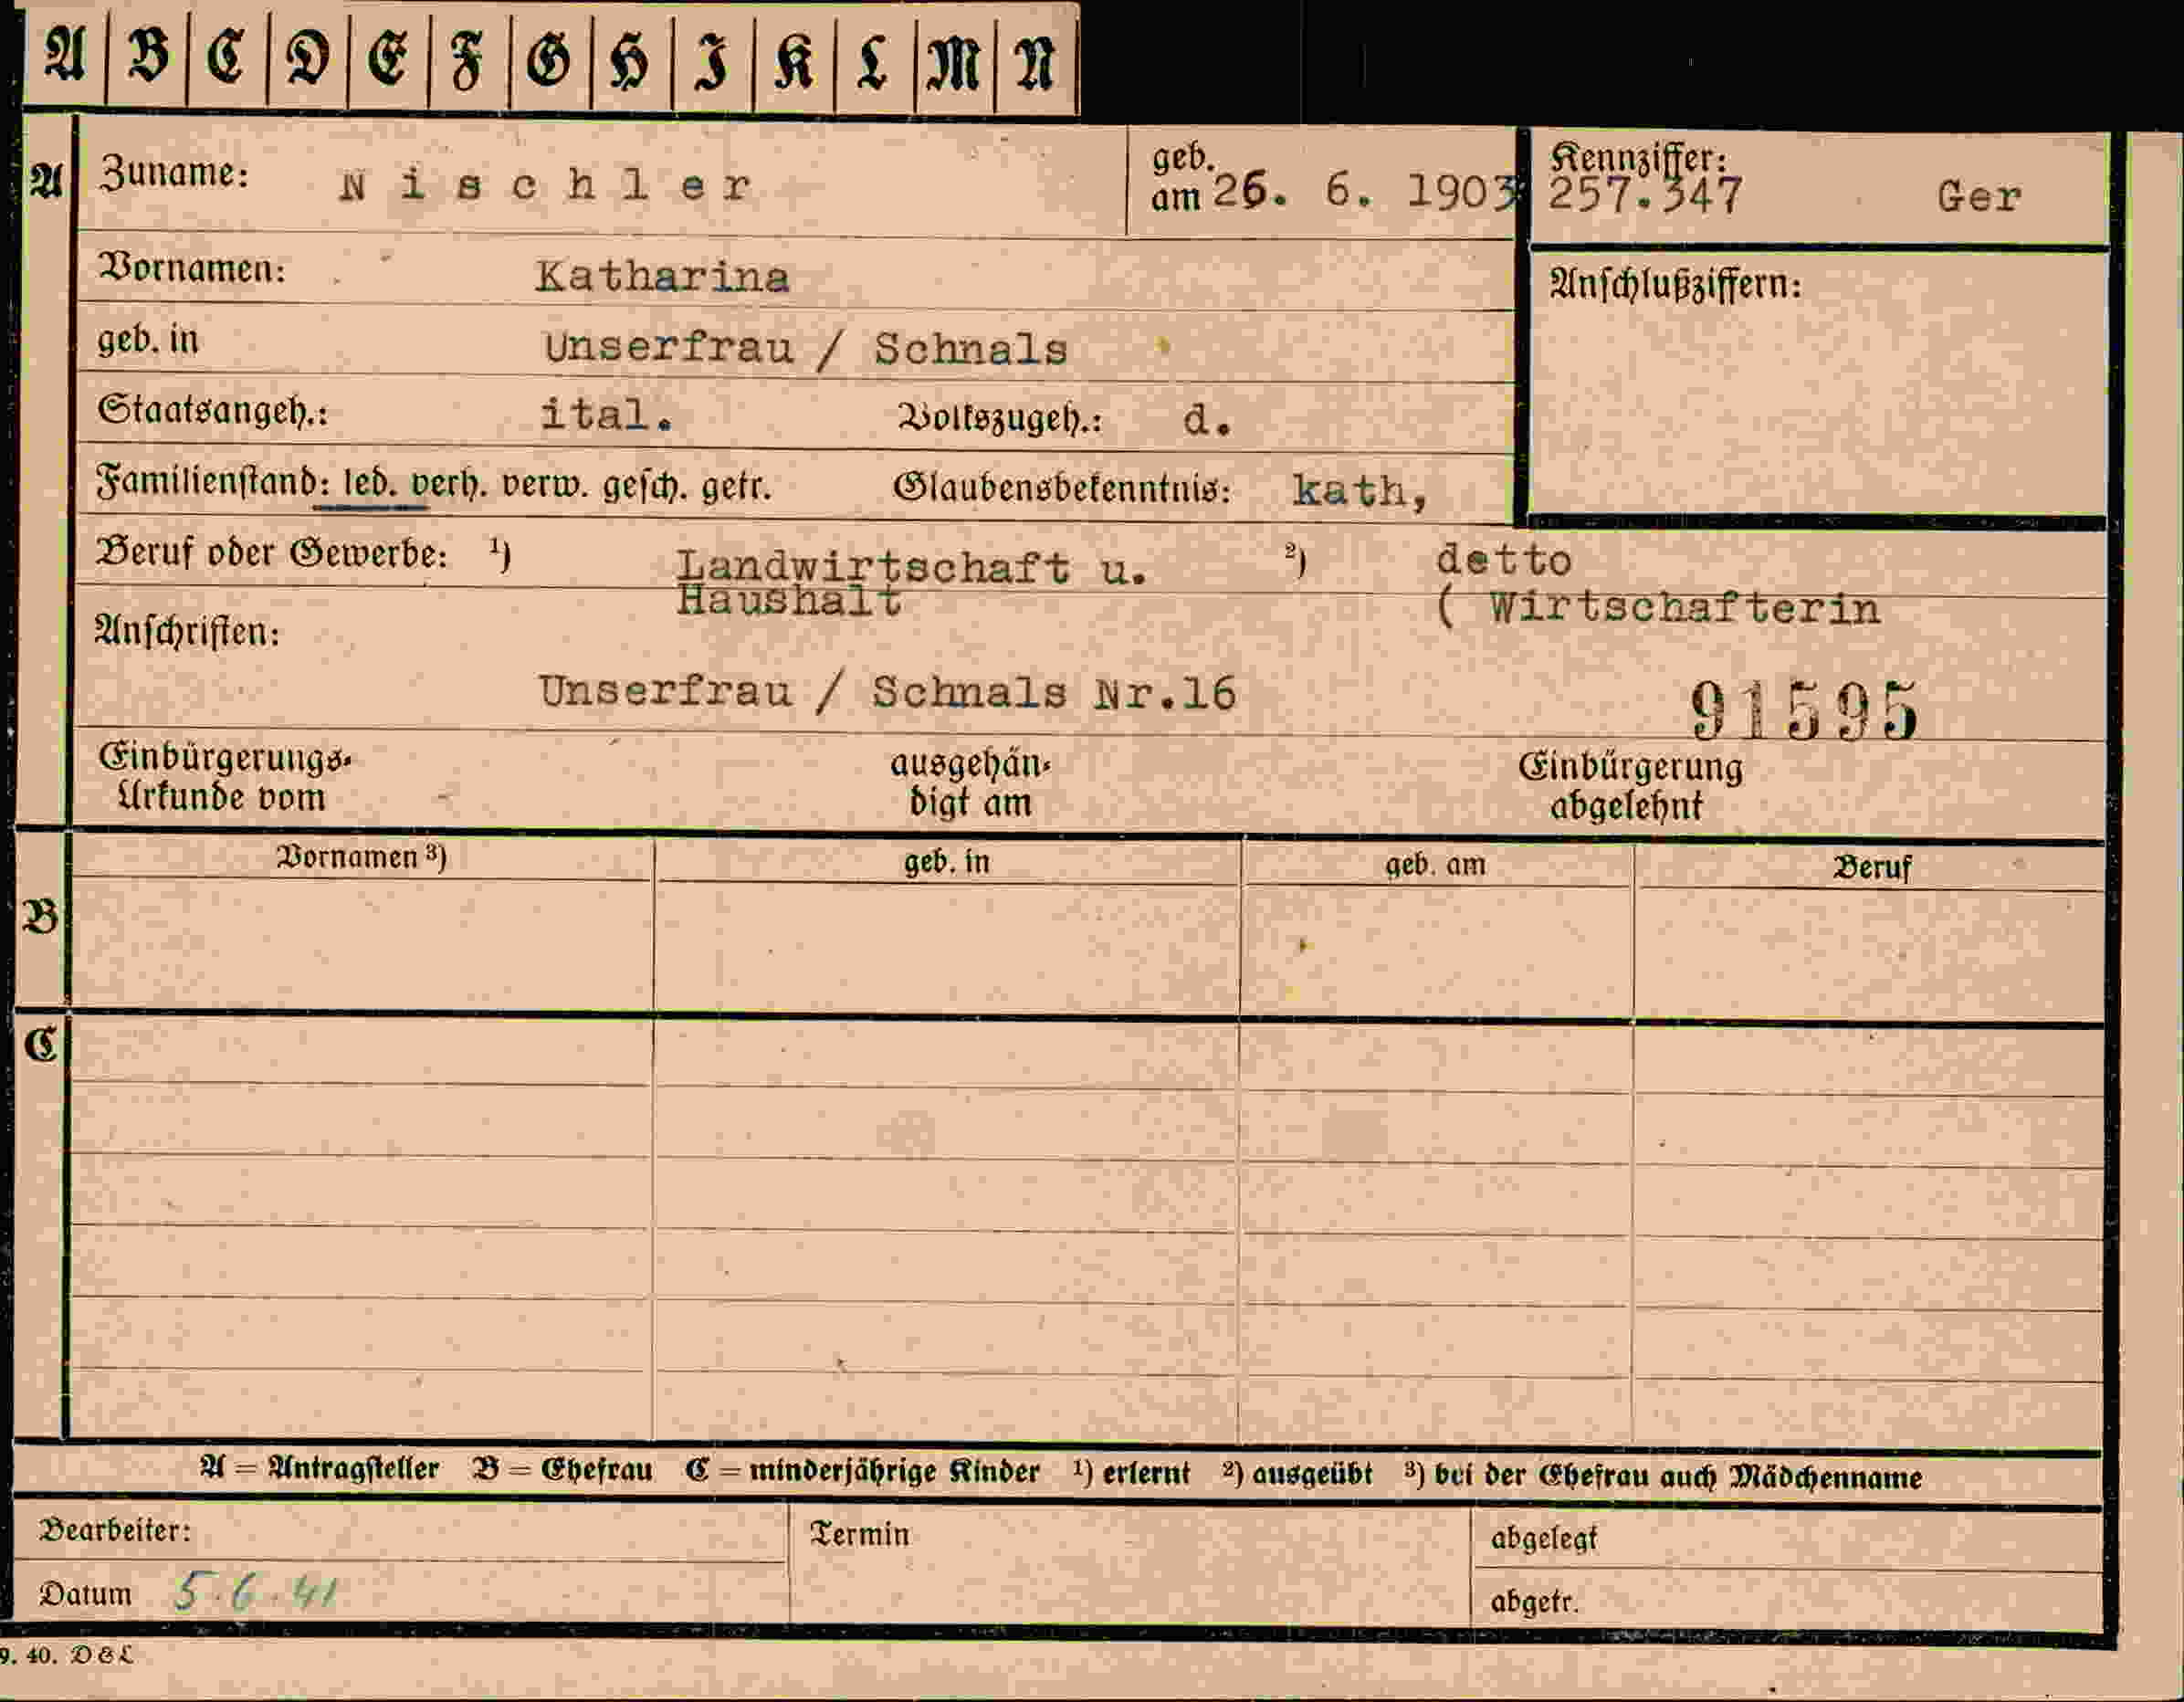 A B C D E F G H I K L M N
A Zuname: Nischler geb. am 26. 6. 1903 Kennziffer: 257.347 Ger
Vornamen: Katharina Anschlußziffern:
geb. in Unserfrau / Schnals
Staatsangeh.: ital. Volkszugeh.: d.
Familienstand: led. verh. verw. gesch. getr. Glaubensbekenntnis: kath,
Beruf oder Gewerbe: ¹) Landwirtschaft u. ²) detto
Haushalt ( Wirtschafterin
Anschriften:
Unserfrau / Schnals Nr.16 91595
Einbürgerungs- ausgehän- Einbürgerung
Urkunde vom digt am abgelehnt
Vornamen ³) geb. in geb. am Beruf
B
C
A = Antragsteller B = Ehefrau C = minderjährige Kinder ¹) erlernt ²) ausgeübt ³) bei der Ehefrau auch Mädchenname
Bearbeiter: Termin abgelegt
Datum 5.6.41 abgetr.
9. 40. D & L